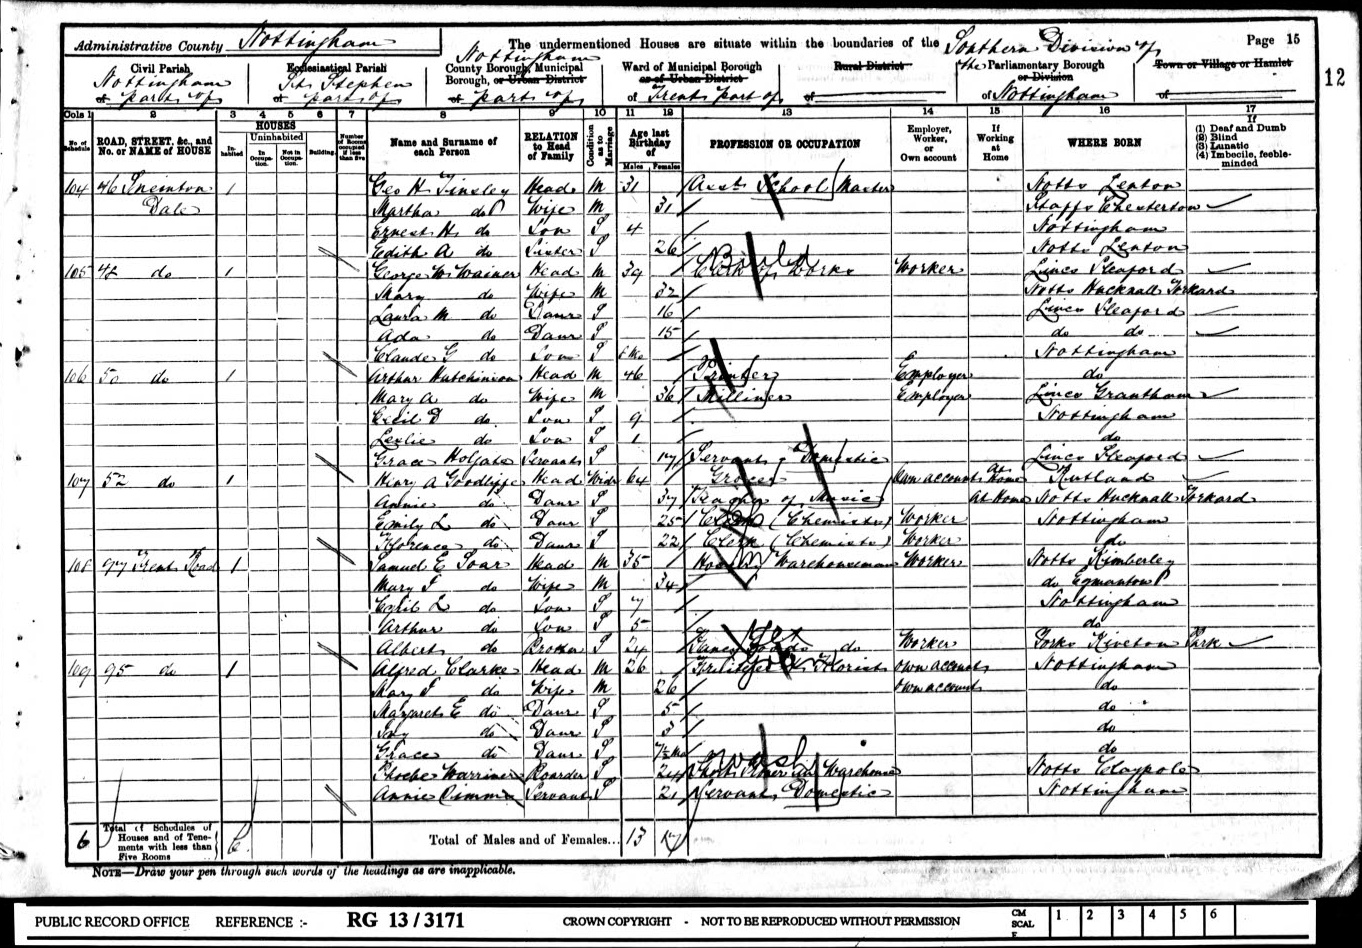 Administrative County Nottingham
The undermentioned Houses are situate within the boundaries of the Southern Division of
Page 15
12
Civil Parish
Nottingham
of part of
Ecclesiastical Parish
St Stephen
of part of
Nottingham
County Borough, Municipal
Borough, or Urban District
of part of
Ward of Municipal Borough
or of Urban District
of Trent part of
Rural District
of
the Parliamentary Borough
or Division
of Nottingham
Town or Village or Hamlet
of
Cols 1 2 3 4 5 6 7 8 9 10 11 12 13 14 15 16 17
No. of Schedule
ROAD, STREET, &c., and No. or NAME of HOUSE
HOUSES
Inhabited
Uninhabited
In Occupation.
Not in Occupation.
Building.
Number of Rooms occupied if less than five
Name and Surname of each Person
RELATION to Head of Family
Condition as to Marriage
Age last Birthday of
Males Females
PROFESSION OR OCCUPATION
Employer, Worker, or Own account
If Working at Home
WHERE BORN
If
(1) Deaf and Dumb
(2) Blind
(3) Lunatic
(4) Imbecile, feeble-minded
104 46 Sneinton 1 Geo H Tinsley Head M 31 Asst School Master Notts Lenton
Dale Martha do Wife M 31 Staffs Chesterton
Ernest H do Son S 4 Nottingham
Edith A do Sister S 26 Notts Lenton
105 48 do 1 George W Wainer Head M 39 Clerk of Works Build Worker Lincs Sleaford
Mary do Wife M 32 Notts Hucknall Torkard
Laura M do Daur S 16 Lincs Sleaford
Ada do Daur S 15 do do
Claude G do Son S Mo Nottingham
106 50 do 1 Arthur Hutchinson Head M 46 Printer Employer do
Mary A do Wife M 36 Milliner Employer Lincs Grantham
Cecil D do Son S 9 Nottingham
Leslie do Son S 1 do
Grace Holgate Servant S 17 Servant Domestic Lincs Sleaford
107 52 do 1 Henry A Goodliffe Head Widr 64 Grocer Own account At Home Rutland
Annie do Daur S 37 Teacher of Music At Home Notts Hucknall Torkard
Emily L do Daur S 25 Clerk (Chemists) Worker Nottingham
Florence do Daur S 22 Clerk (Chemists) Worker do
108 97 Trent Road 1 Samuel E Soar Head M 35 Hosiery Warehouseman Worker Notts Kimberley
Mary F do Wife M 34 do Egmanton
Cyril L do Son S 7 Nottingham
Arthur do Son S 5 do
Albert do Brother S 24 Fancy Goods do Worker Yorks Kiveton Park
109 95 do 1 Alfred Clarke Head M 26 Fruiterer & Florist own account Nottingham
Mary F do Wife M 26 own account do
Margaret E do Daur S 5 do
Ivy do Daur S 3 do
Grace do Daur S Mo do
Phoebe Warriner Boarder S 24 Warehouse Notts Claypole
Annie Servant S 21 Servant Domestic Nottingham
6 Total of Schedules of Houses and of Tenements with less than Five Rooms 6 Total of Males and of Females... 13 17
NOTE—Draw your pen through such words of the headings as are inapplicable.
PUBLIC RECORD OFFICE REFERENCE :- RG 13 / 3171 CROWN COPYRIGHT - NOT TO BE REPRODUCED WITHOUT PERMISSION CM SCALE 1 2 3 4 5 6